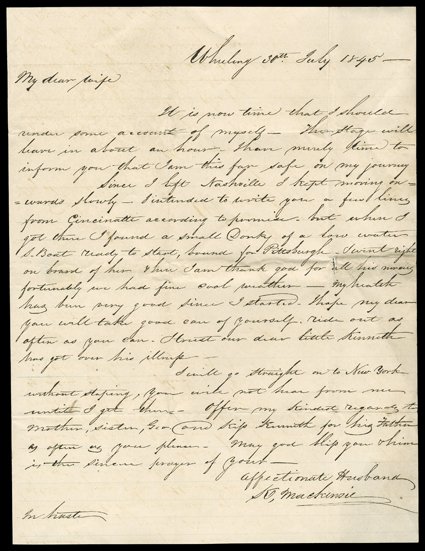 Wheeling 30th July 1845 —
My dear wife
It is now time that I should
render some account of myself — The Stage will
leave in about an hour. I have merely time to
inform you that I am this far safe on my journey
Since I left Nashville I kept moving on=
=wards slowly — I intended to write you a few lines
from Cincinatti according to promise. but when I
got there I found a small Donky of a low water
S. Boat ready to start, bound for Pittsburgh — I went right
on board of her & here I am thank god for all his mercies
fortunately we had fine cool weather — My health
has bun very good since I started. I hope my dear
you will take good care of yourself. ride out as
often as you can. I trust our dear little Kenneth
has got over his illness —
I will go straight on to New York
without stoping, you will not hear from me
until I get there — Offer my kindest regards to
Mother, sister, Geo and Kiss Kenneth for his Father
as often as you please. May god bless you & him
is the sincere prayer of your —
affectionate Husband
Mackenzie
In haste